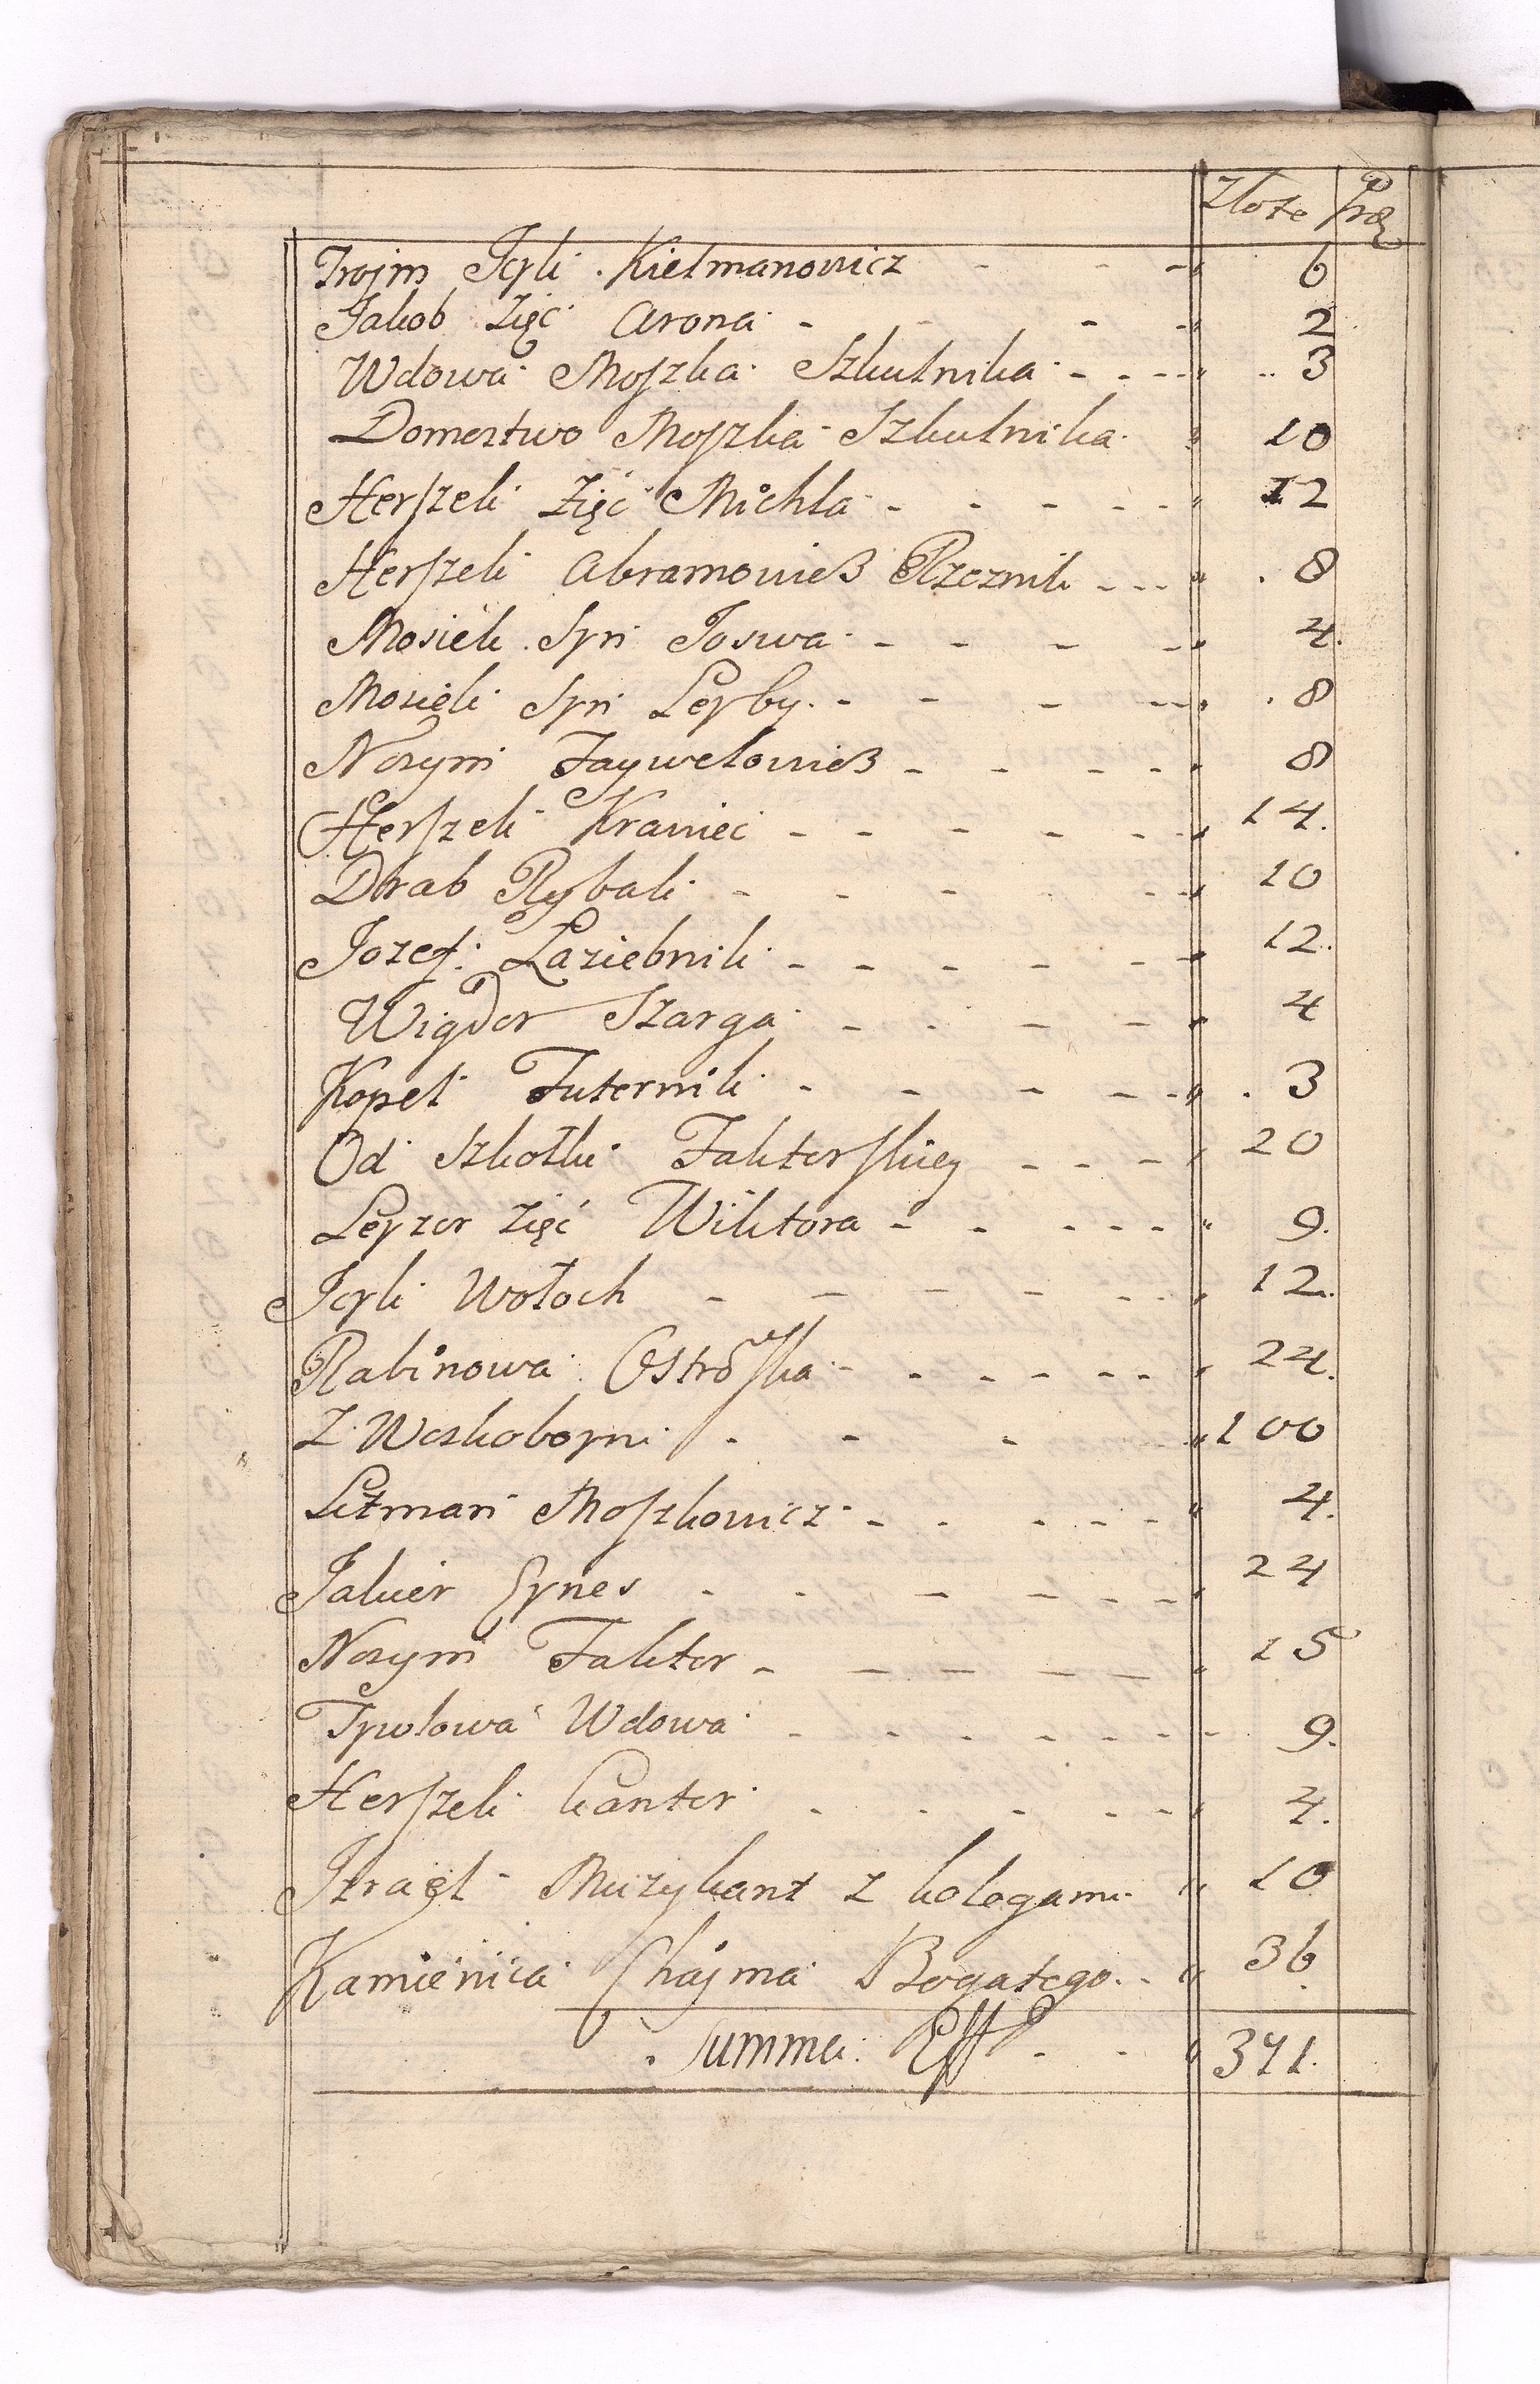 Złote Pol
Froim Icyk Kielmanowicz - - - " 6
Jakob Zięć Arona - - - " 2
Wdowa Moszka Szkutnika - - - " 3
Domostwo Moszka Szkutnika " 10
Herszek Zięć Michla - - - - - " 12
Herszek Abramowicz Rzeznik - - - " 8
Mosiek Syn Joswa - - - - " 4.
Mosiek Syn Leyby - - - - " 8
Nosym Faywelowicz - - - - " 8
Herszek Krawiec - - - - - " 14.
Drab Rybak - - - - " 10
Jozef Łaziebnik - - - - - " 12.
Wigdor Szarga - - - - " 4
Kopel Futernik - - - - - " 3
Od Szkołki Faktorskiey - - - " 20
Leyzor Zięć Wiktora - - - - - " 9.
Icyk Wołoch - - - - - - " 12.
Rabinowa Ostrowska - - - - - - " 24.
Z Woskoboyni - - - " 100
Litman Moszkowicz - - - - - " 4.
Jakier Eynes - - - - - - " 24
Nosym Faktor - - - - - " 15
Wdowa - - - - - - - 9.
Herszek Kantor - - - - - " 4.
Izrael Muzykant z kolegami " 10
Kamienica Chaima Bogatego - - " 36
Summa - - " 371.